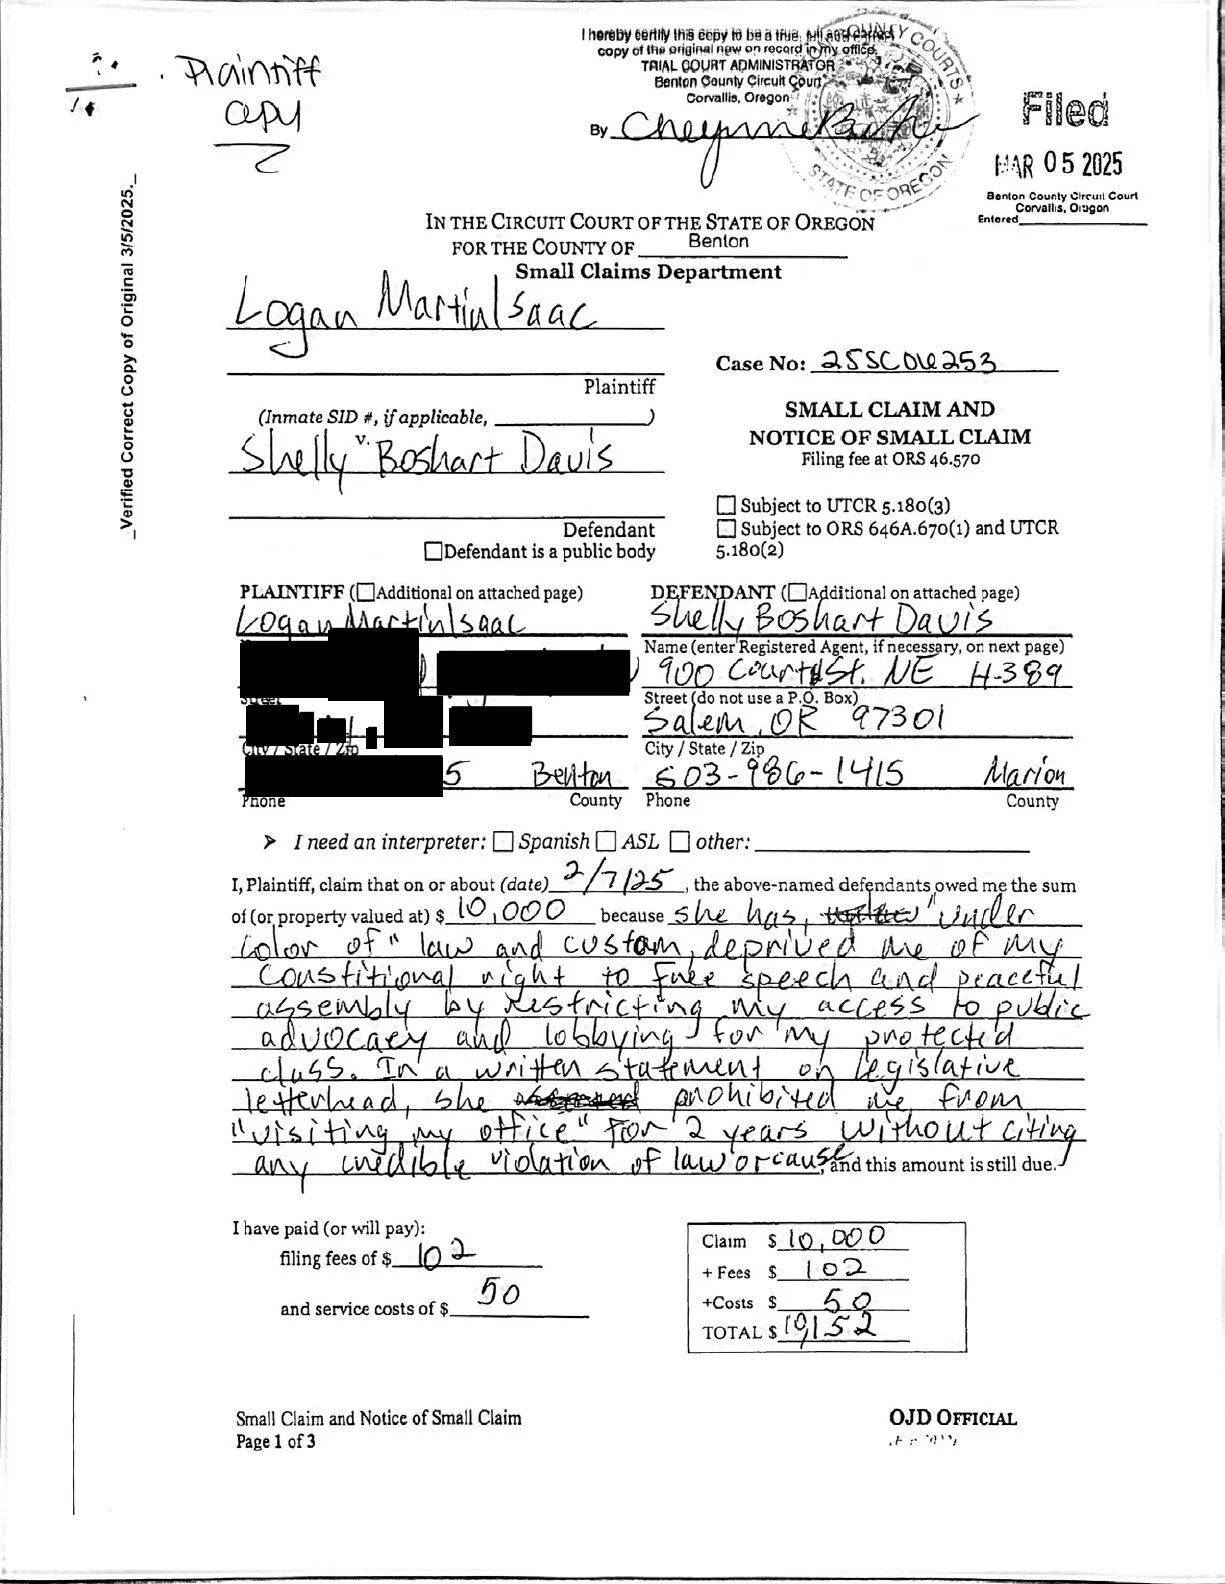 Plaintiff
copy
I hereby certify this copy to be a true,
copy of the original now on record in my office.
TRIAL COURT ADMINISTRATOR
Benton County Circuit Court
Corvallis, Oregon
By
COUNTY COURTS
STATE OF OREGON
Filed
MAR 05 2025
Benton County Circuit Court
Corvallis, Oregon
Entered
_Verified Correct Copy of Original 3/5/2025._
IN THE CIRCUIT COURT OF THE STATE OF OREGON
FOR THE COUNTY OF Benton
Small Claims Department
Logan MartinIsaac
Plaintiff
(Inmate SID #, if applicable, )
v.
Shelly Boshart Davis
Defendant
Defendant is a public body
Case No: 25SC06253
SMALL CLAIM AND
NOTICE OF SMALL CLAIM
Filing fee at ORS 46.570
Subject to UTCR 5.180(3)
Subject to ORS 646A.670(1) and UTCR
5.180(2)
PLAINTIFF (Additional on attached page)
Logan MartinIsaac
Street
City / State / Zip
5 Benton
Phone County
DEFENDANT (Additional on attached page)
Shelly Boshart Davis
Name (enter Registered Agent, if necessary, on next page)
900 Court St. NE H-389
Street (do not use a P.O. Box)
Salem, OR 97301
City / State / Zip
503-986-1415 Marion
Phone County
➤ I need an interpreter: Spanish ASL other:
I, Plaintiff, claim that on or about (date) 2/7/25, the above-named defendants owed me the sum
of (or property valued at) $ 10,000 because she has, "under
color of" law and custom, deprived me of my
constitional right to free speech and peaceful
assembly by restricting my access to public
advocacy and lobbying for my protected
class. In a written statement on legislative
letterhead, she prohibited me from
"visiting my office" for 2 years without citing
any credible violation of law or cause, and this amount is still due.
I have paid (or will pay):
filing fees of $ 102
and service costs of $ 50
Claim $ 10,000
+ Fees $ 102
+Costs $ 50
TOTAL $ 10,152
Small Claim and Notice of Small Claim
Page 1 of 3
OJD OFFICIAL